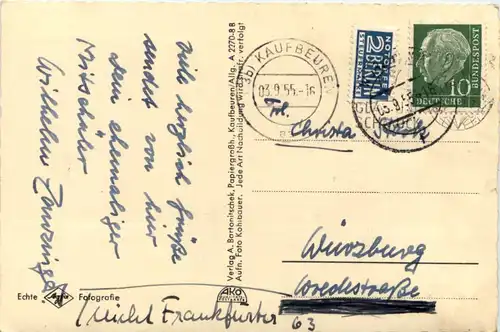 Viele herzliche Grüße
sendet von hier
dein ehemaliger
Mitschüler
Wilhelm
Verlag A. Bartonitschek, Papiergroßh., Kaufbeuren/Allg. A 2270-8B
Aufn. Foto Kohlbauer. Jede Art Nachbildung wird strafr. verfolgt
KAUFBEUREN
03.9.55.-16
NOTOPFER
2 BERLIN
STEUERMARKE
DEUTSCHE
BUNDESPOST
10
Frl.
Christa
Würzburg
Wredestraße
Echte Agfa Fotografie
AKO
(nicht Frankfurter 63